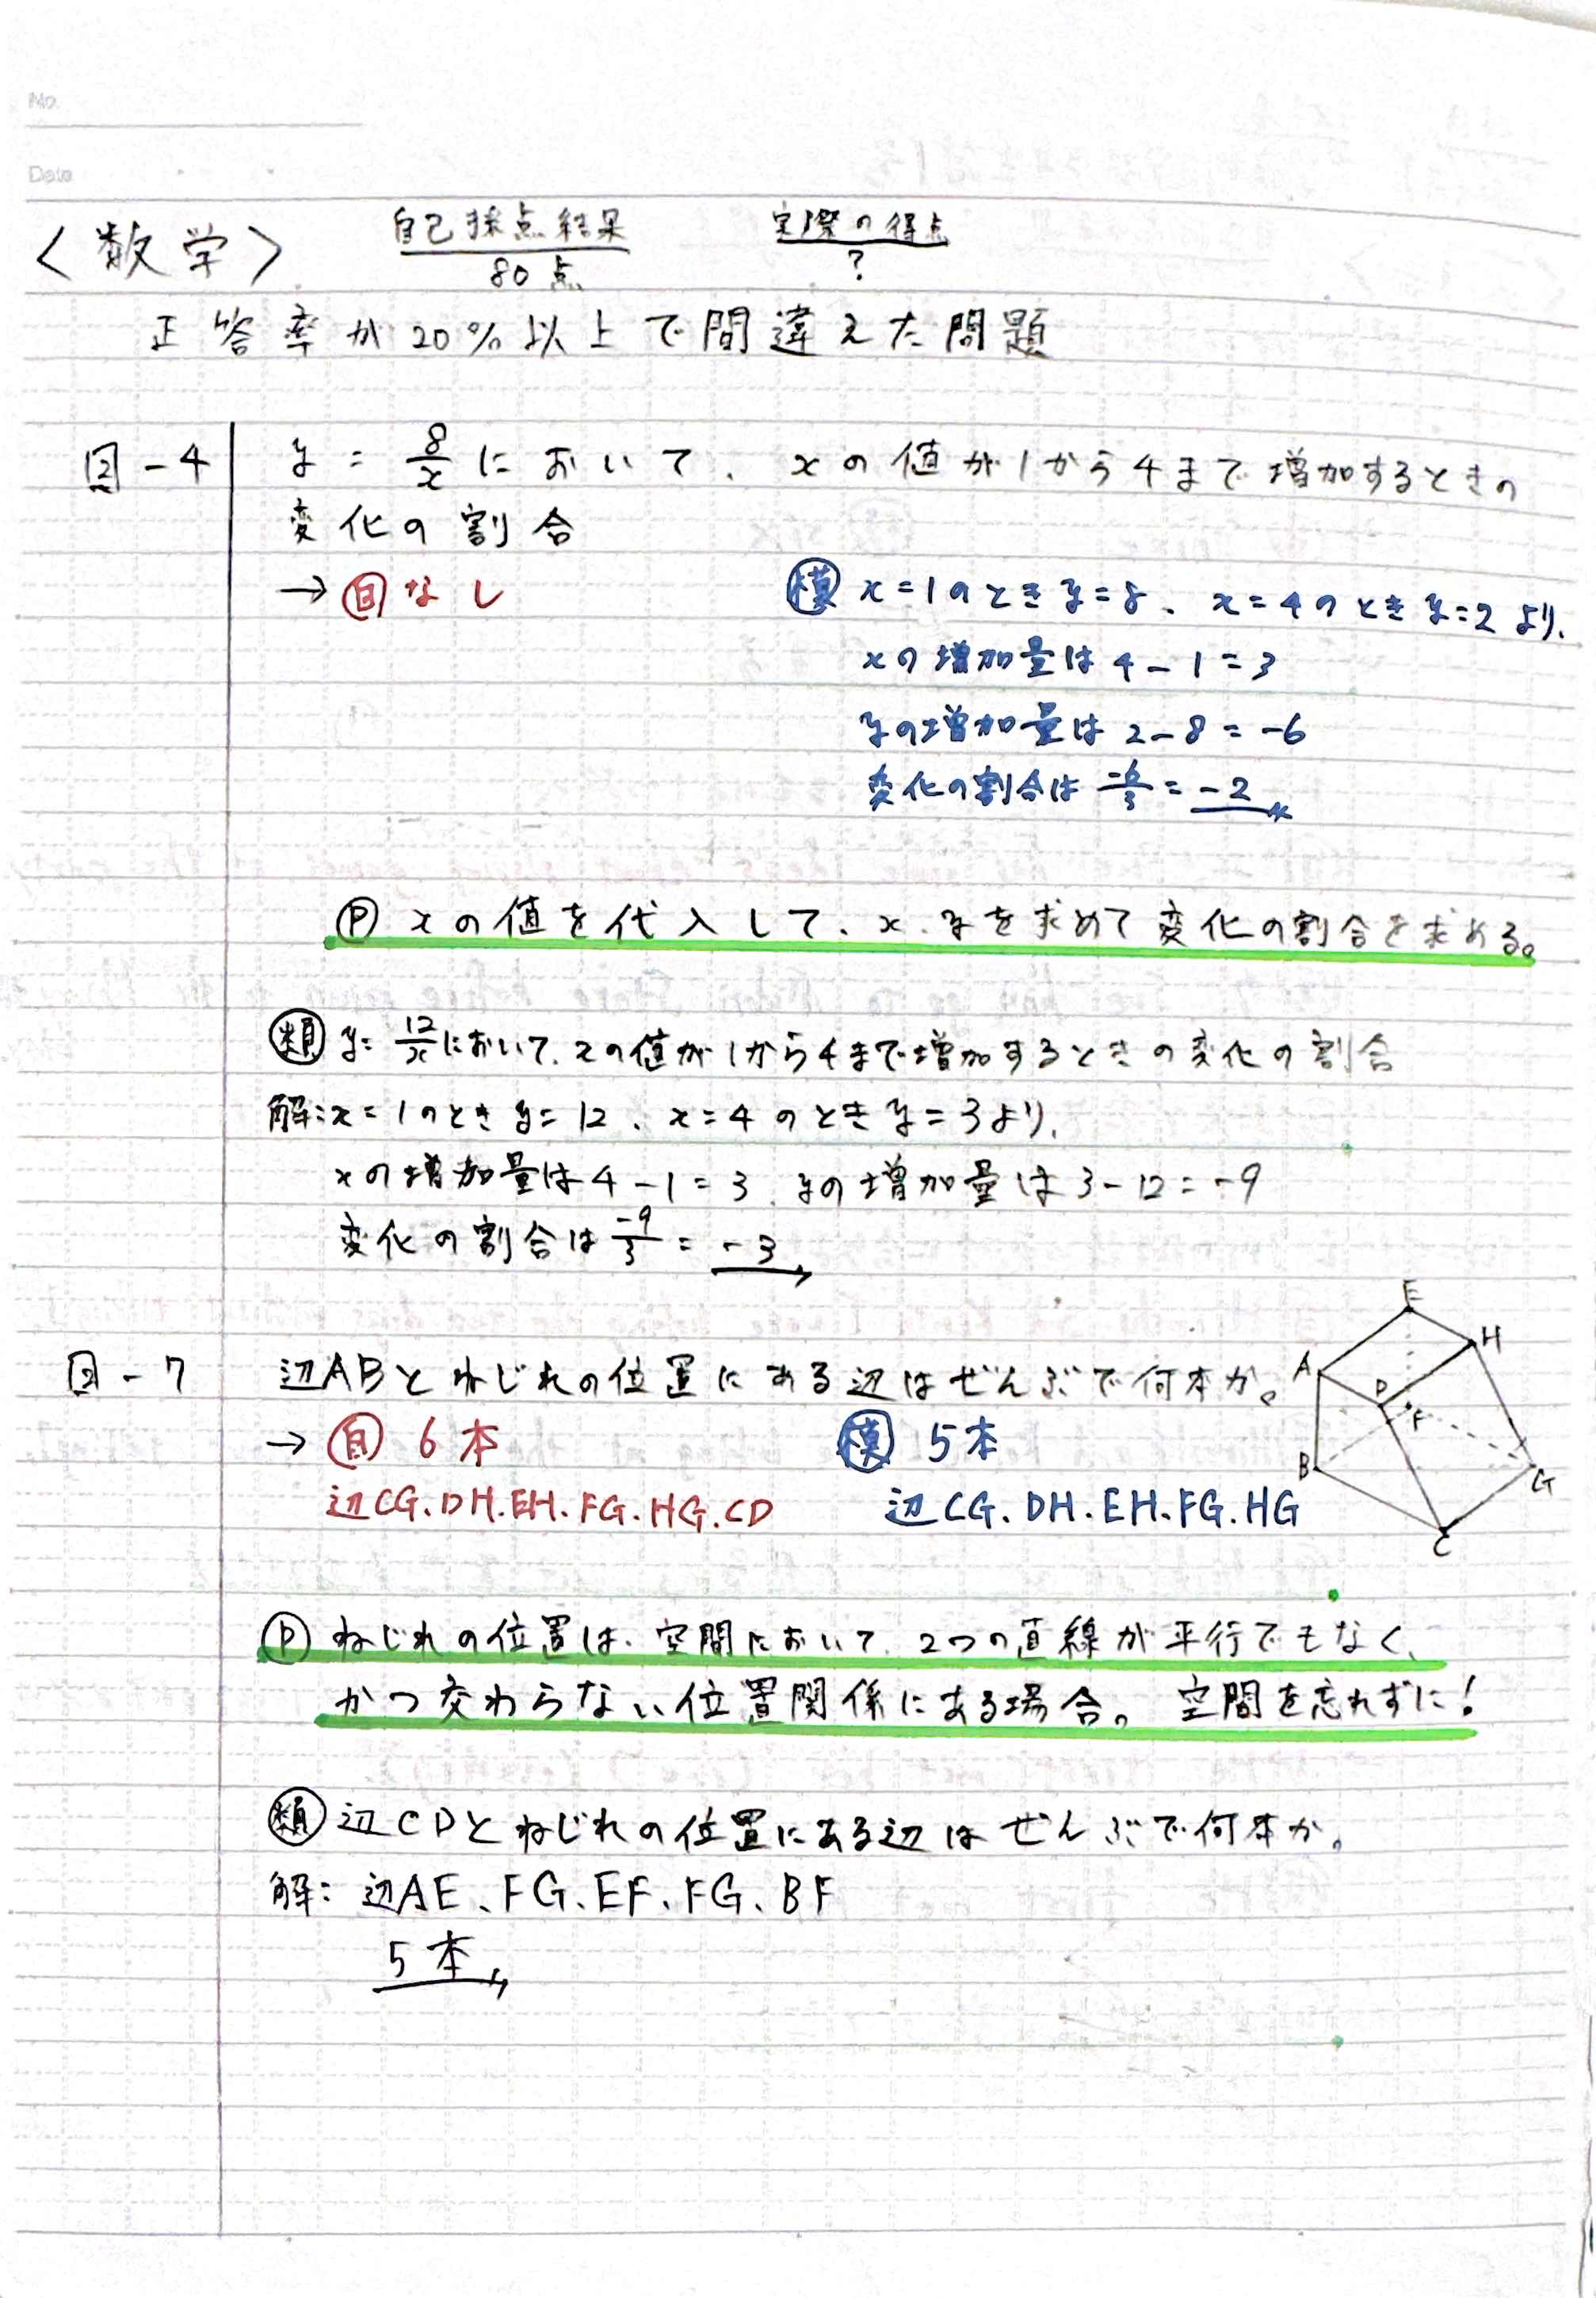 No.
Date
<数学> 自己採点結果 80点 実際の得点 ?
正答率が20%以上で間違えた問題
2-4 y=8/xにおいて、xの値が1から4まで増加するときの
変化の割合
→自なし
模 x=1のときy=8、x=4のときy=2より、
xの増加量は4-1=3
yの増加量は2-8=-6
変化の割合は-6/3=-2
P xの値を代入して、x、yを求めて変化の割合を求める。
類 y=12/xにおいて、xの値が1から4まで増加するときの変化の割合
解:x=1のときy=12、x=4のときy=3より、
xの増加量は4-1=3、yの増加量は3-12=-9
変化の割合は-9/3=-3
2-7 辺ABとねじれの位置にある辺はぜんぶで何本か。
→自 6本
辺CG.DH.EH.FG.HG.CD
模 5本
辺CG.DH.EH.FG.HG
E
H
A
D
F
B
G
C
P ねじれの位置は、空間において、2つの直線が平行でもなく、
かつ交わらない位置関係にある場合。空間を忘れずに!
類 辺CDとねじれの位置にある辺はぜんぶで何本か。
解:辺AE、FG、EF、FG、BF
5本